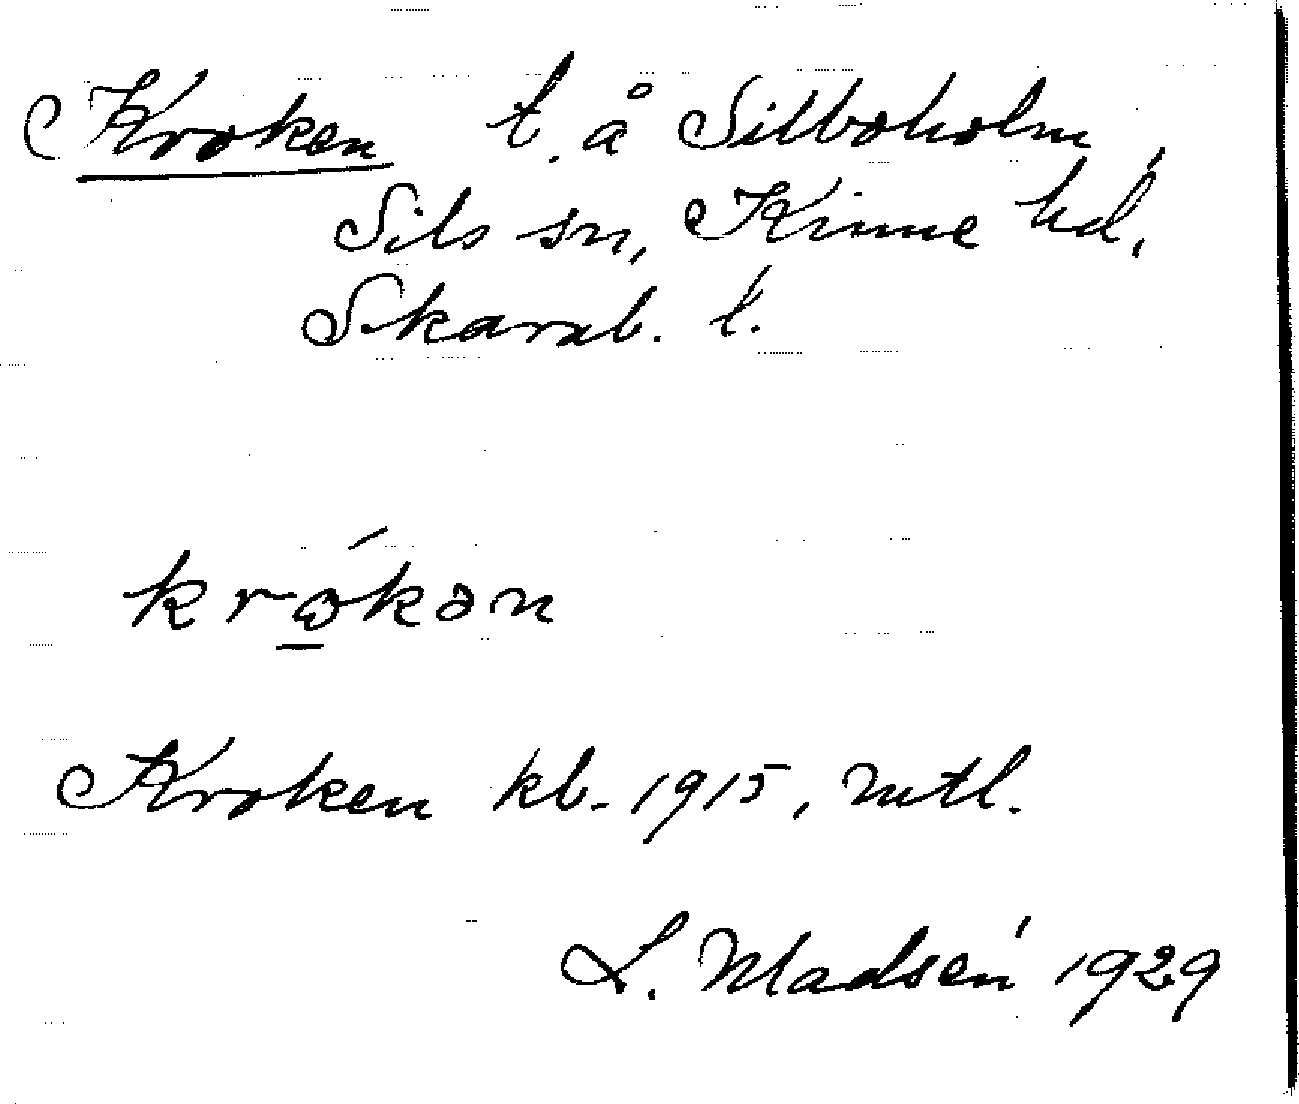 Kroken t. å Silboholm
Sils sn, Kinne hd,
Skarab. l.
krókən
Kroken kb. 1915, mtl.
L. Madsén 1929